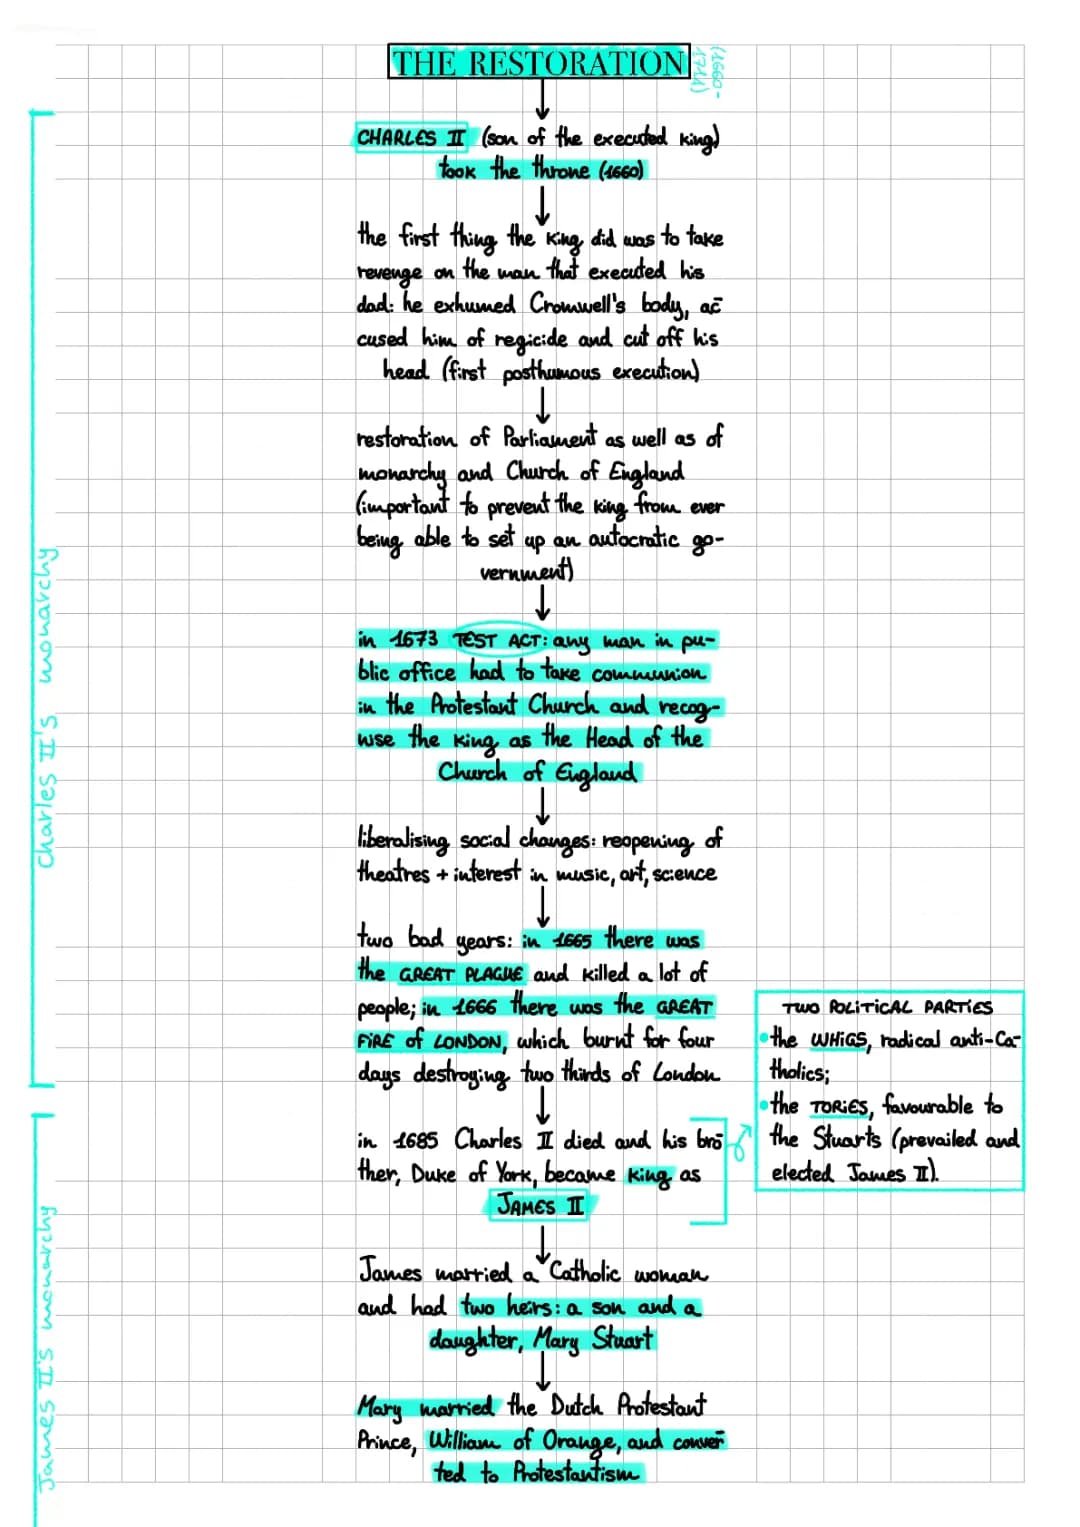 THE RESTORATION
(1660-
1714)
CHARLES II (son of the executed king)
took the throne (1660)
the first thing the king did was to take
revenge on the man that executed his
dad: he exhumed Cromwell's body, ac
cused him of regicide and cut off his
head (first posthumous execution)
restoration of Parliament as well as of
monarchy and Church of England
(important to prevent the king from ever
being able to set up an autocratic go-
vernment)
in 1673 TEST ACT: any man in pu-
blic office had to take communion
in the Protestant Church and recog-
wise the king as the Head of the
Church of England
liberalising social changes: reopening of
theatres + interest in music, art, science
two bad years: in 1665 there was
the GREAT PLAGUE and killed a lot of
people; in 1666 there was the GREAT
FIRE of LONDON, which burnt for four
days destroying two thirds of London
in 1685 Charles II died and his bro
ther, Duke of York, became king as
JAMES II
TWO POLITICAL PARTIES
• the WHIGS, radical anti-Ca-
tholics;
• the TORIES, favourable to
the Stuarts (prevailed and
elected James II).
James married a Catholic woman
and had two heirs: a son and a
daughter, Mary Stuart
Mary married the Dutch Protestant
Prince, William of Orange, and conver
ted to Protestantism
Charles II's monarchy
James II's monarchy